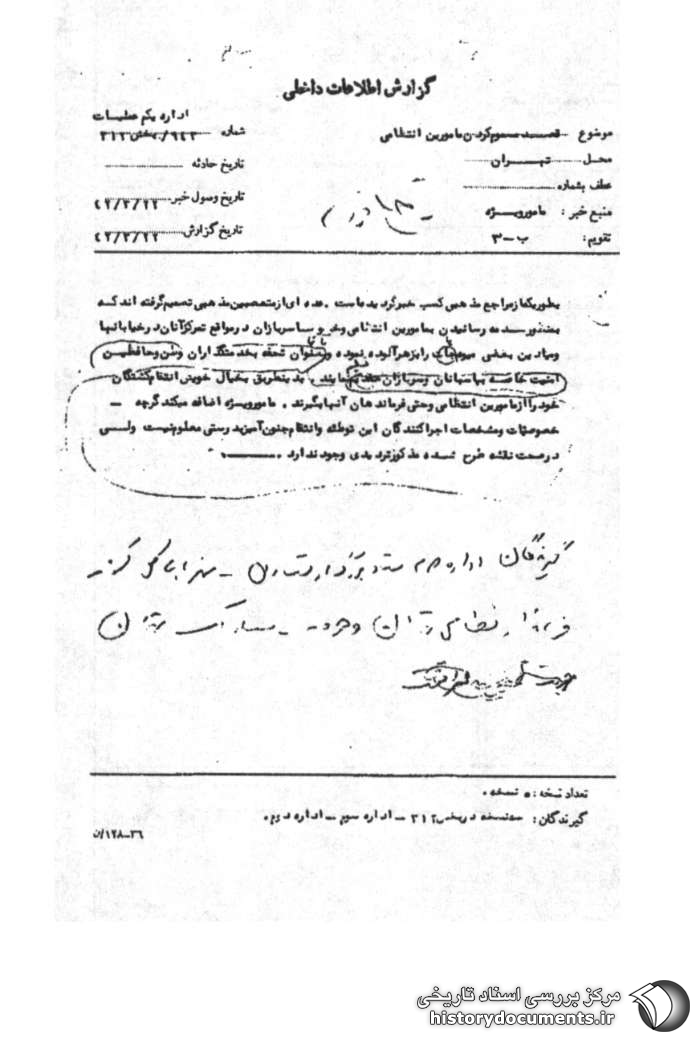 گزارش اطلاعات داخلی
اداره یکم عملیات
موضوع قصد مسموم کردن مامورین انتظامی
شماره ۳۱۲/۹۴۳ بخش
محل تهران
تاریخ حادثه
عطف بشماره
تاریخ وصول خبر ۴۲/۳/۲۲
منبع خبر : مامور ویژه
تاریخ گزارش ۴۲/۳/۲۲
تقویم : ب-۳
بطوریکه از مراجع مذهبی کسب خبر گردیده است . عده ای از متعصبین مذهبی تصمیم گرفته اند که
بمنظور صدمه رسانیدن بمامورین انتظامی و سربازان در مواقع تمرکز آنان در خیابانها
و میادین بعضی میوه جات را بزهر آلوده نموده و بعنوان تحفه بخدمتگذاران وطن و محافظین
امنیت خاصه بپاسبانان و سربازان بنمایند . بدینطریق بخیال خویش انتقام کشتگان
خود را از مامورین انتظامی و حتی فرماندهان آنها بگیرند . مامور ویژه اضافه میکند گرچه -
خصوصیات و مشخصات اجرا کنندگان این توطئه و انتقام جنون آمیز بدرستی معلوم نیست ولی
در صحت نقشه طرح شده مذکور تردیدی وجود ندارد .
گیرندگان اداره
فرماندار نظامی تهران
تعداد نسخه : ۵ نسخه .
گیرندگان : سه نسخه در بخش ۳۱۲ - اداره سوم - اداره دوم .
۳۶-۱۲۸/ن
مرکز بررسی اسناد تاریخی
historydocuments.ir